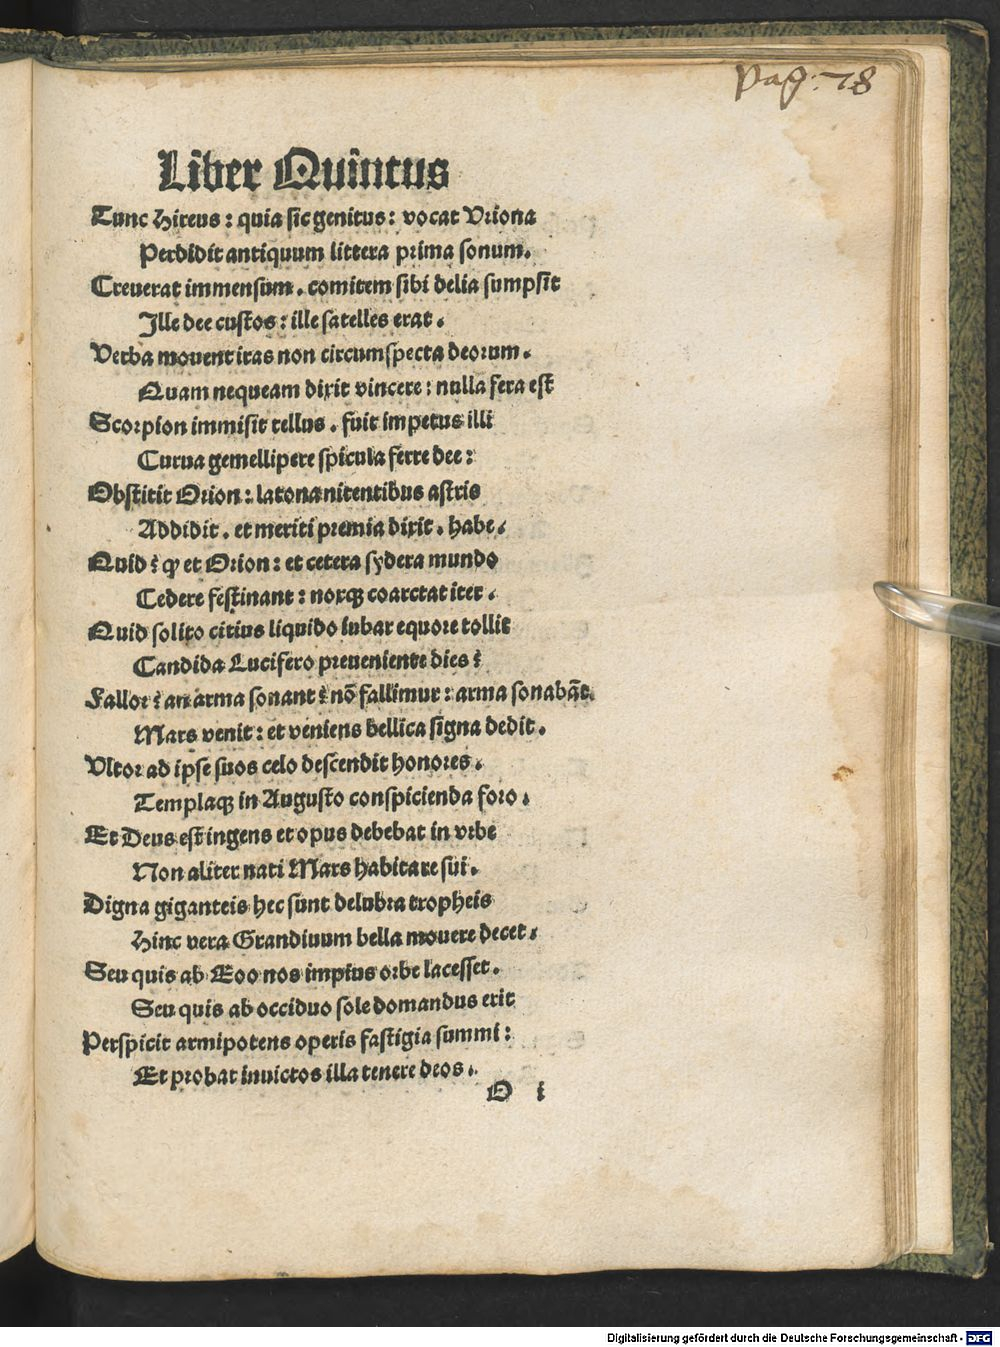 Pag: 78
Liber Quintus
Tunc Hireus: quia sic genitus: vocat Uriona
Perdidit antiquum littera prima sonum.
Creuerat immensum. comitem sibi delia sumpsit
Ille dee custos: ille satelles erat.
Verba mouent iras non circumspecta deorum.
Quam nequeam dixit vincere: nulla fera est
Scorpion immisit tellus. fuit impetus illi
Curua gemellipere spicula ferre dee:
Obstitit Orion: latona nitentibus astris
Addidit. et meriti premia dixit. habe.
Quid? ꝙ et Orion: et cetera sydera mundo
Cedere festinant: noxqꝫ coarctat iter.
Quid solito citius liquido iubar equore tollit
Candida Lucifero preueniente dies?
Fallor? an arma sonant? nõ fallimur: arma sonabãt.
Mars venit: et veniens bellica signa dedit.
Ultor ad ipse suos celo descendit honores.
Templaqꝫ in Augusto conspicienda foro.
Et Deus est ingens et opus debebat in vrbe
Non aliter nati Mars habitare sui.
Digna giganteis hec sunt delubra tropheis
Hinc vera Grandiuum bella mouere decet.
Seu quis ab Eoo nos impius orbe lacesset.
Seu quis ab occiduo sole domandus erit
Perspicit armipotens operis fastigia summi:
Et probat inuictos illa tenere deos.
O i
Digitalisierung gefördert durch die Deutsche Forschungsgemeinschaft - DFG